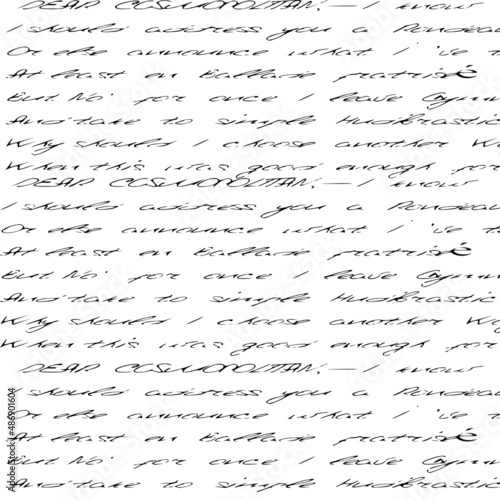 DEAR COSMOPOLITAN: — I know
I should address you a Rondeau
Or else announce what I've t
At least en Ballade
But No: for once I leave Gymn
And take to simple Hudibrastic
Why should I choose another W
When this was good enough for
DEAR COSMOPOLITAN: — I know
I should address you a Rondeau
Or else announce what I've t
At least en Ballade
But No: for once I leave Gymn
And take to simple Hudibrastic
Why should I choose another Wa
When this was good enough for
DEAR COSMOPOLITAN: — I know
I should address you a Rondeau
Or else announce what I've t
At least en Ballade
But No: for once I leave Gymn
And take to simple Hudibrastic
Adobe Stock | #486901604